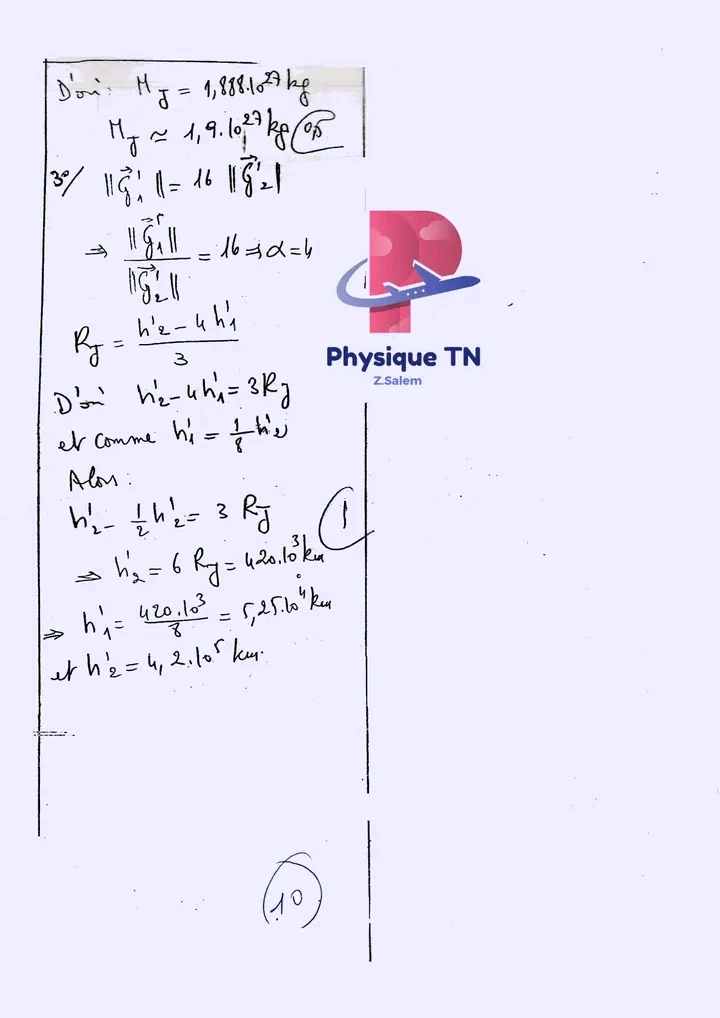 D'où : M_J = 1,888.10^27 kg
M_J ≃ 1,9.10^27 kg 0,5
3°/ ||G⃗'₁|| = 16 ||G⃗'₂||
⇒ ||G⃗'₁|| / ||G⃗'₂|| = 16 ⇒ α = 4
R_J = (h'₂ - 4 h'₁) / 3
D'où h'₂ - 4h'₁ = 3R_J
et comme h'₁ = 1/8 h'₂
Alors :
h'₂ - 1/2 h'₂ = 3 R_J
1
⇒ h'₂ = 6 R_J = 420.10³ km
⇒ h'₁ = 420.10³ / 8 = 5,25.10⁴ km
et h'₂ = 4,2.10⁵ km.
10
Physique TN
Z.Salem